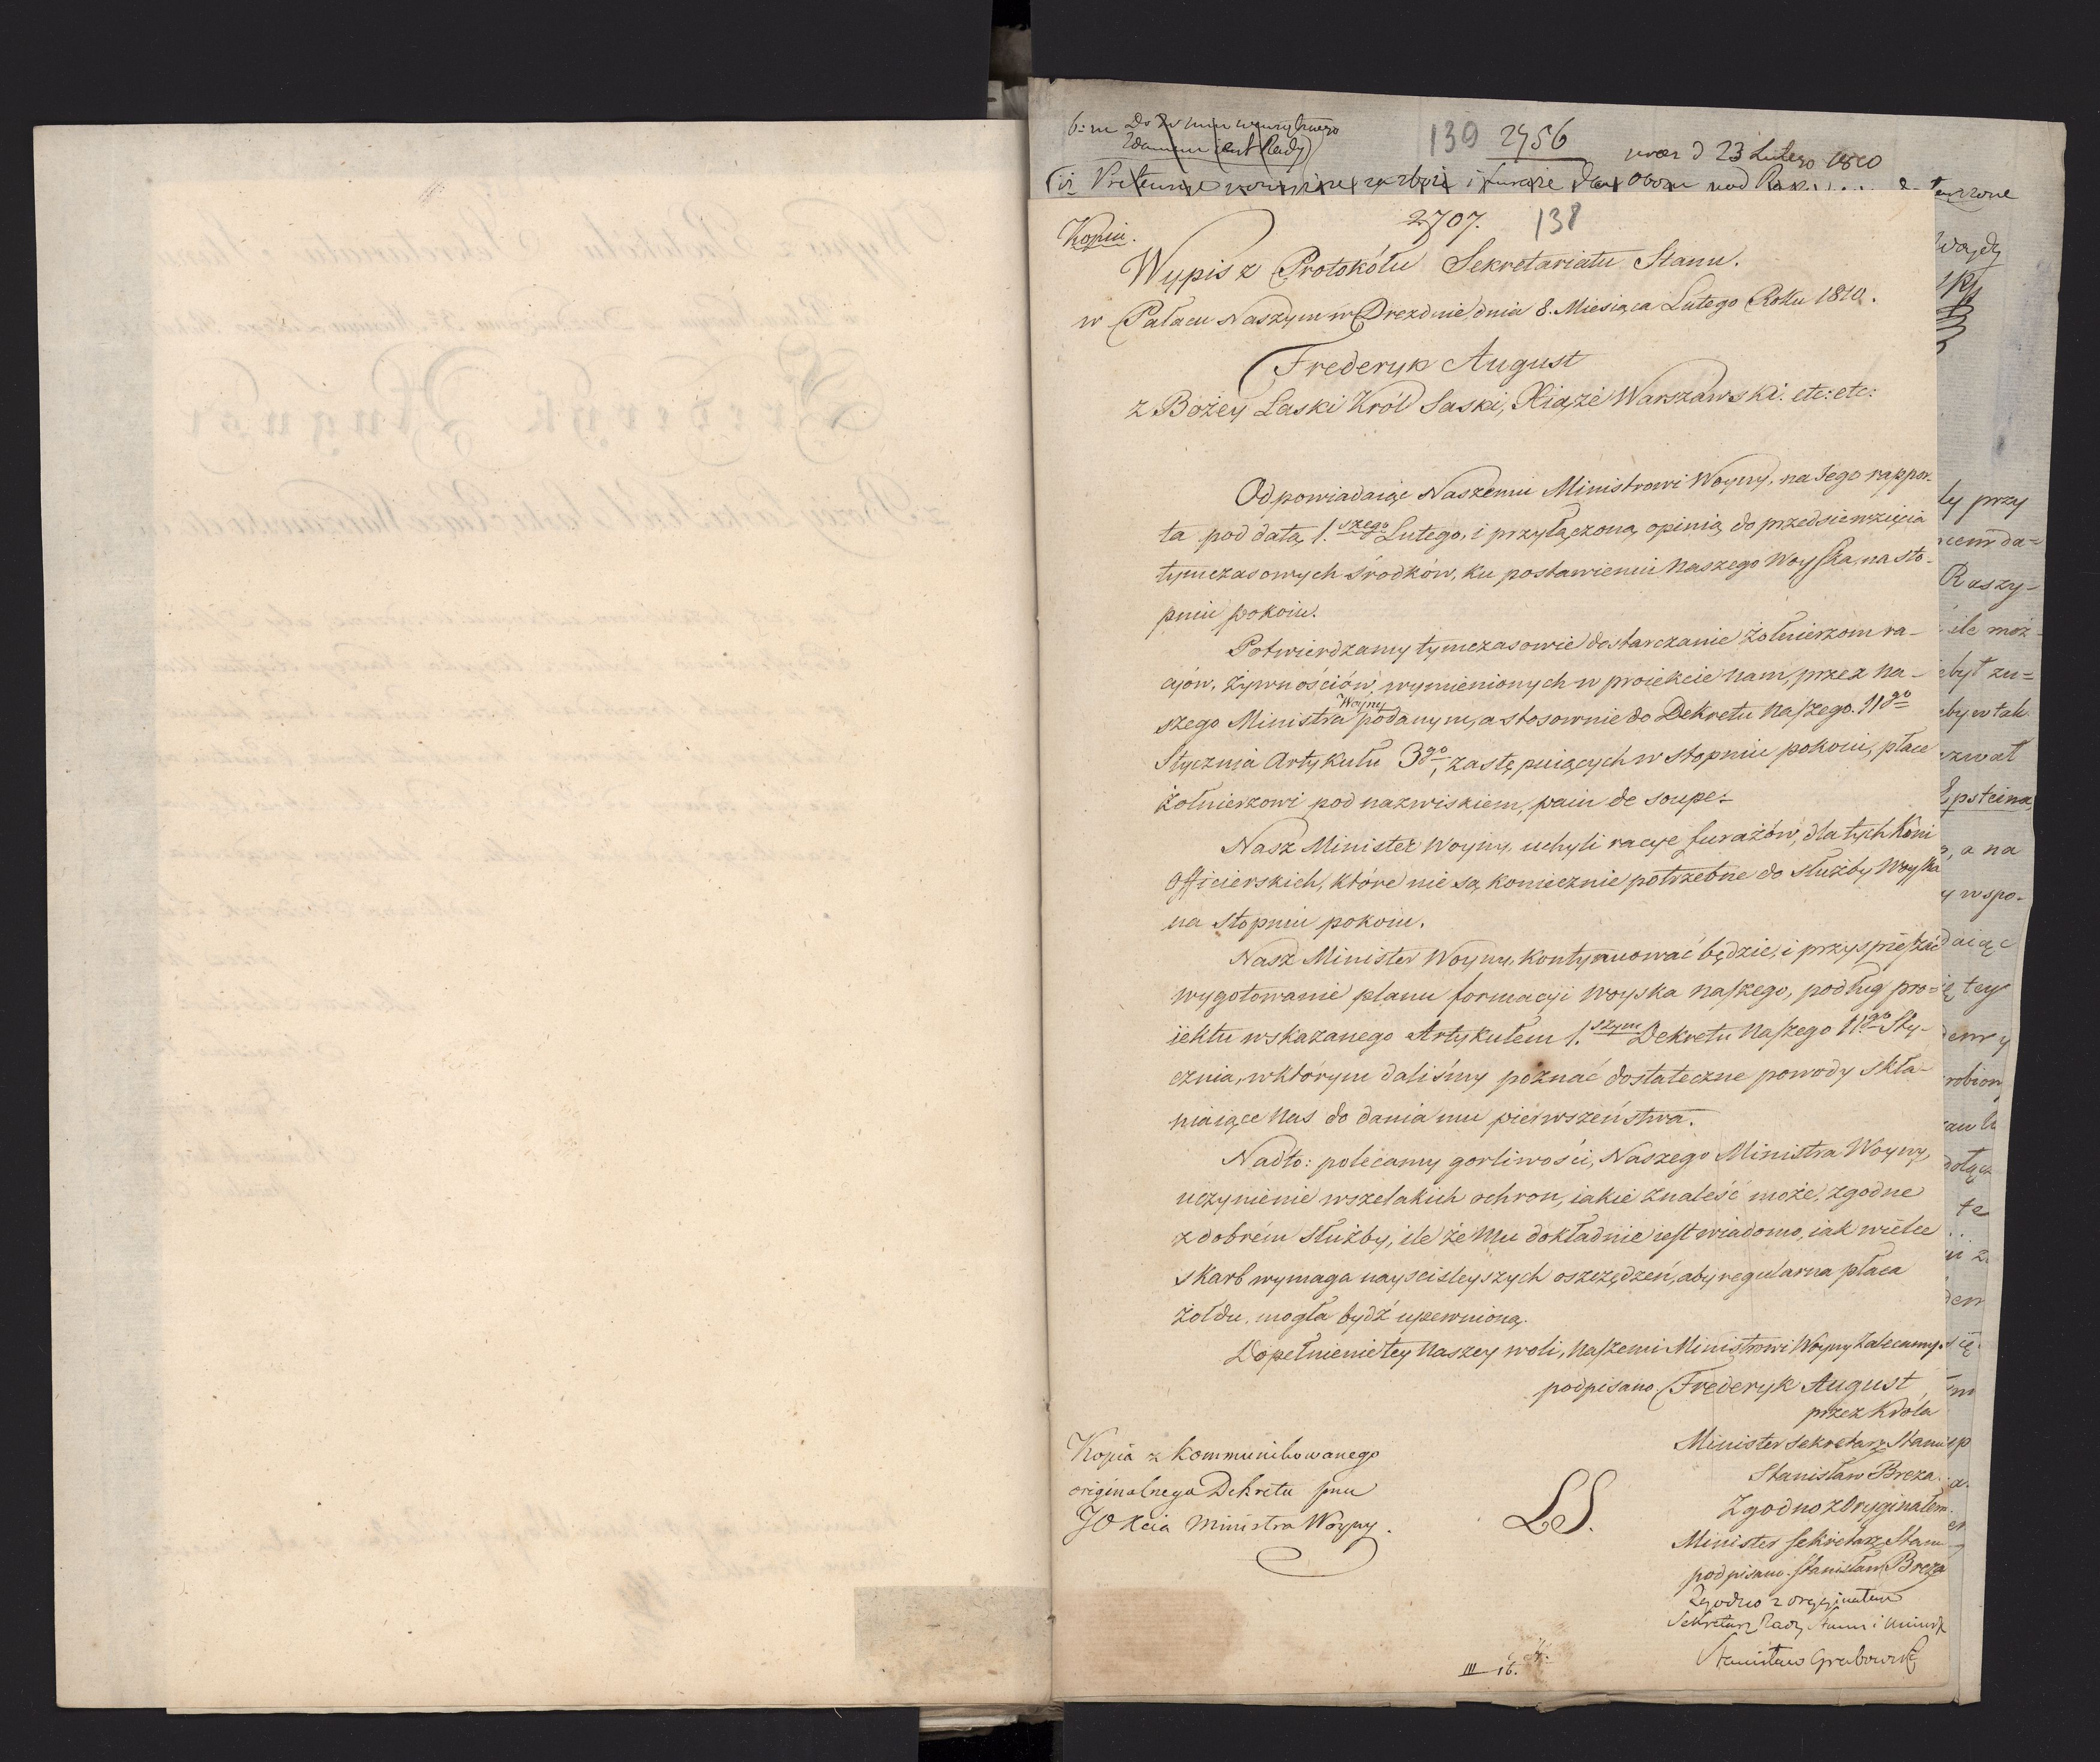 139 2456
23 Lutego 1810
Kopia. 2707. 138
Wypis z Protokółu Sekretariatu Stanu.
w Pałacu Naszym w Dreznie, dnia 8. Miesiąca Lutego Roku 1810.
Frederyk August
z Bożey Łaski Król Saski, Xiąże Warszawski. etc: etc:
Odpowiadaiąc Naszemu Ministrowi Woyny, na Jego rappor-
ta pod datą 1.szego Lutego, i przyłączoną opinią do przedsięwzięcia
tymczasowych środków, ku postawieniu Naszego Woyska, na sto-
pniu pokoiu.
Potwierdzamy tymczasowie dostarczanie żołnierzom ra-
cyów, żywnościów, wymienionych w proiekcie nam, przez na-
szego Ministra Woyny podanym, a stosownie do Dekretu Naszego 11go
Stycznia Artykułu 3go, zastępuiących w stopniu pokoiu, płace
żołnierzowi pod nazwiskiem, pain de soupe.
Nasz Minister Woyny, uchyli racye furażów, dla tych koni
officierskich, które nie są koniecznie potrzebne do służby Woyska
na stopniu pokoiu.
Nasz Minister Woyny, kontynuować będzie, i przyspieszać
wygotowanie planu formacyi woyska naszego, podług pro-
iektu wskazanego Artykułem 1.szym Dekretu Naszego 11.go Sty-
cznia, w którym daliśmy poznać dostateczne powody skła-
niaiące Nas do dania mu pierwszeństwa.
Nadto: polecamy gorliwości, Naszego Ministra Woyny,
uczynienie wszelakich ochron, iakie znaleść może, zgodne
z dobrém służby, ile że Mu dokładnie iest wiadomo, iak wielce
skarb wymaga nayscisleyszych oszczędzeń, aby regularna płaca
żołdu, mogła bydź upewnioną.
Dopełnienie tey Naszey woli, Naszemu Ministrowi Woyny zalecamy.
podpisano Frederyk August,
przez Króla
Minister Sekretarz Stanu
Stanisław Breza.
Zgodno z Oryginałem.
Minister Sekretarz Stanu
podpisano. Stanisław Breza
Zgodno z oryginałem
Sekretarz Rady Stanu i
Stanisław Grabowski
Kopia z kommunikowanego
originalnego Dekretu pnu
JO Xcia Ministra Woyny.
LS.
III